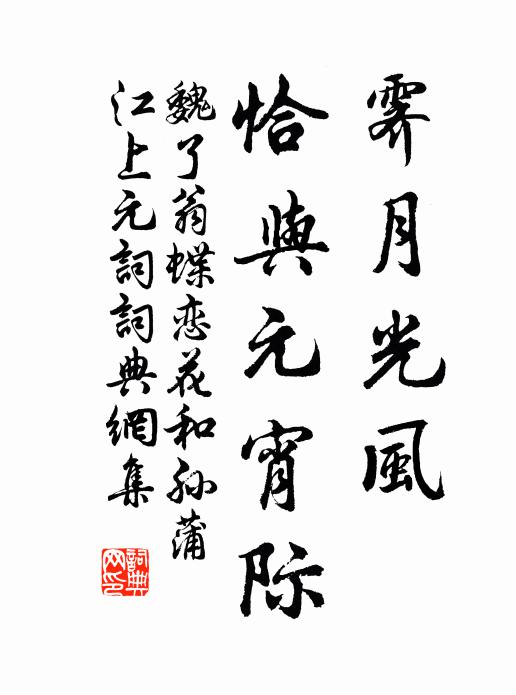 霽月光風
恰與元宵際
魏了翁蝶恋花和孙蒲
江上元詞詞典網集
詞典网印